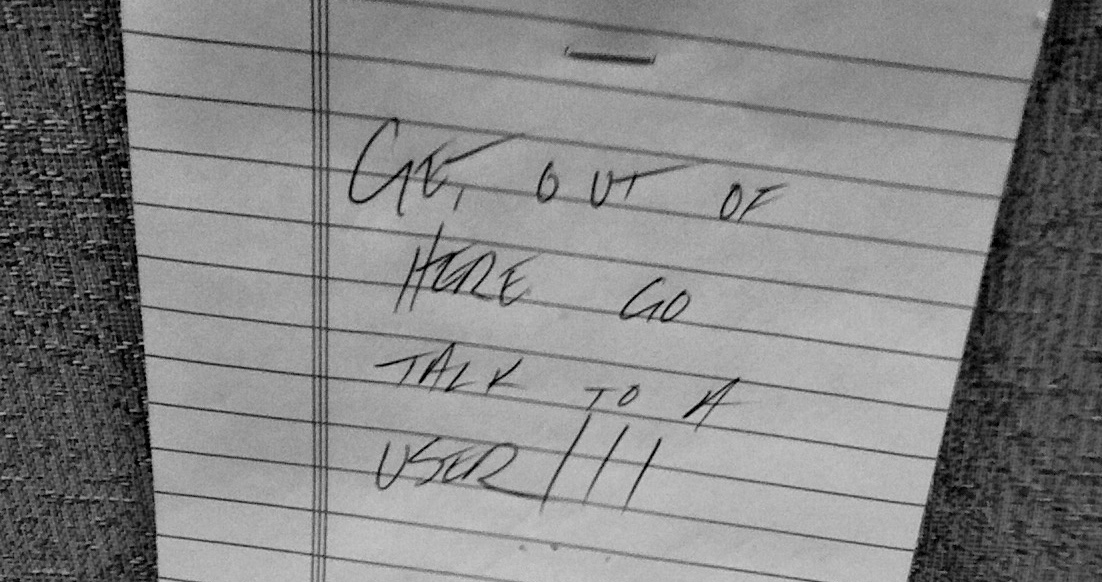 GET OUT OF
HERE GO
TALK TO A
USER!!!